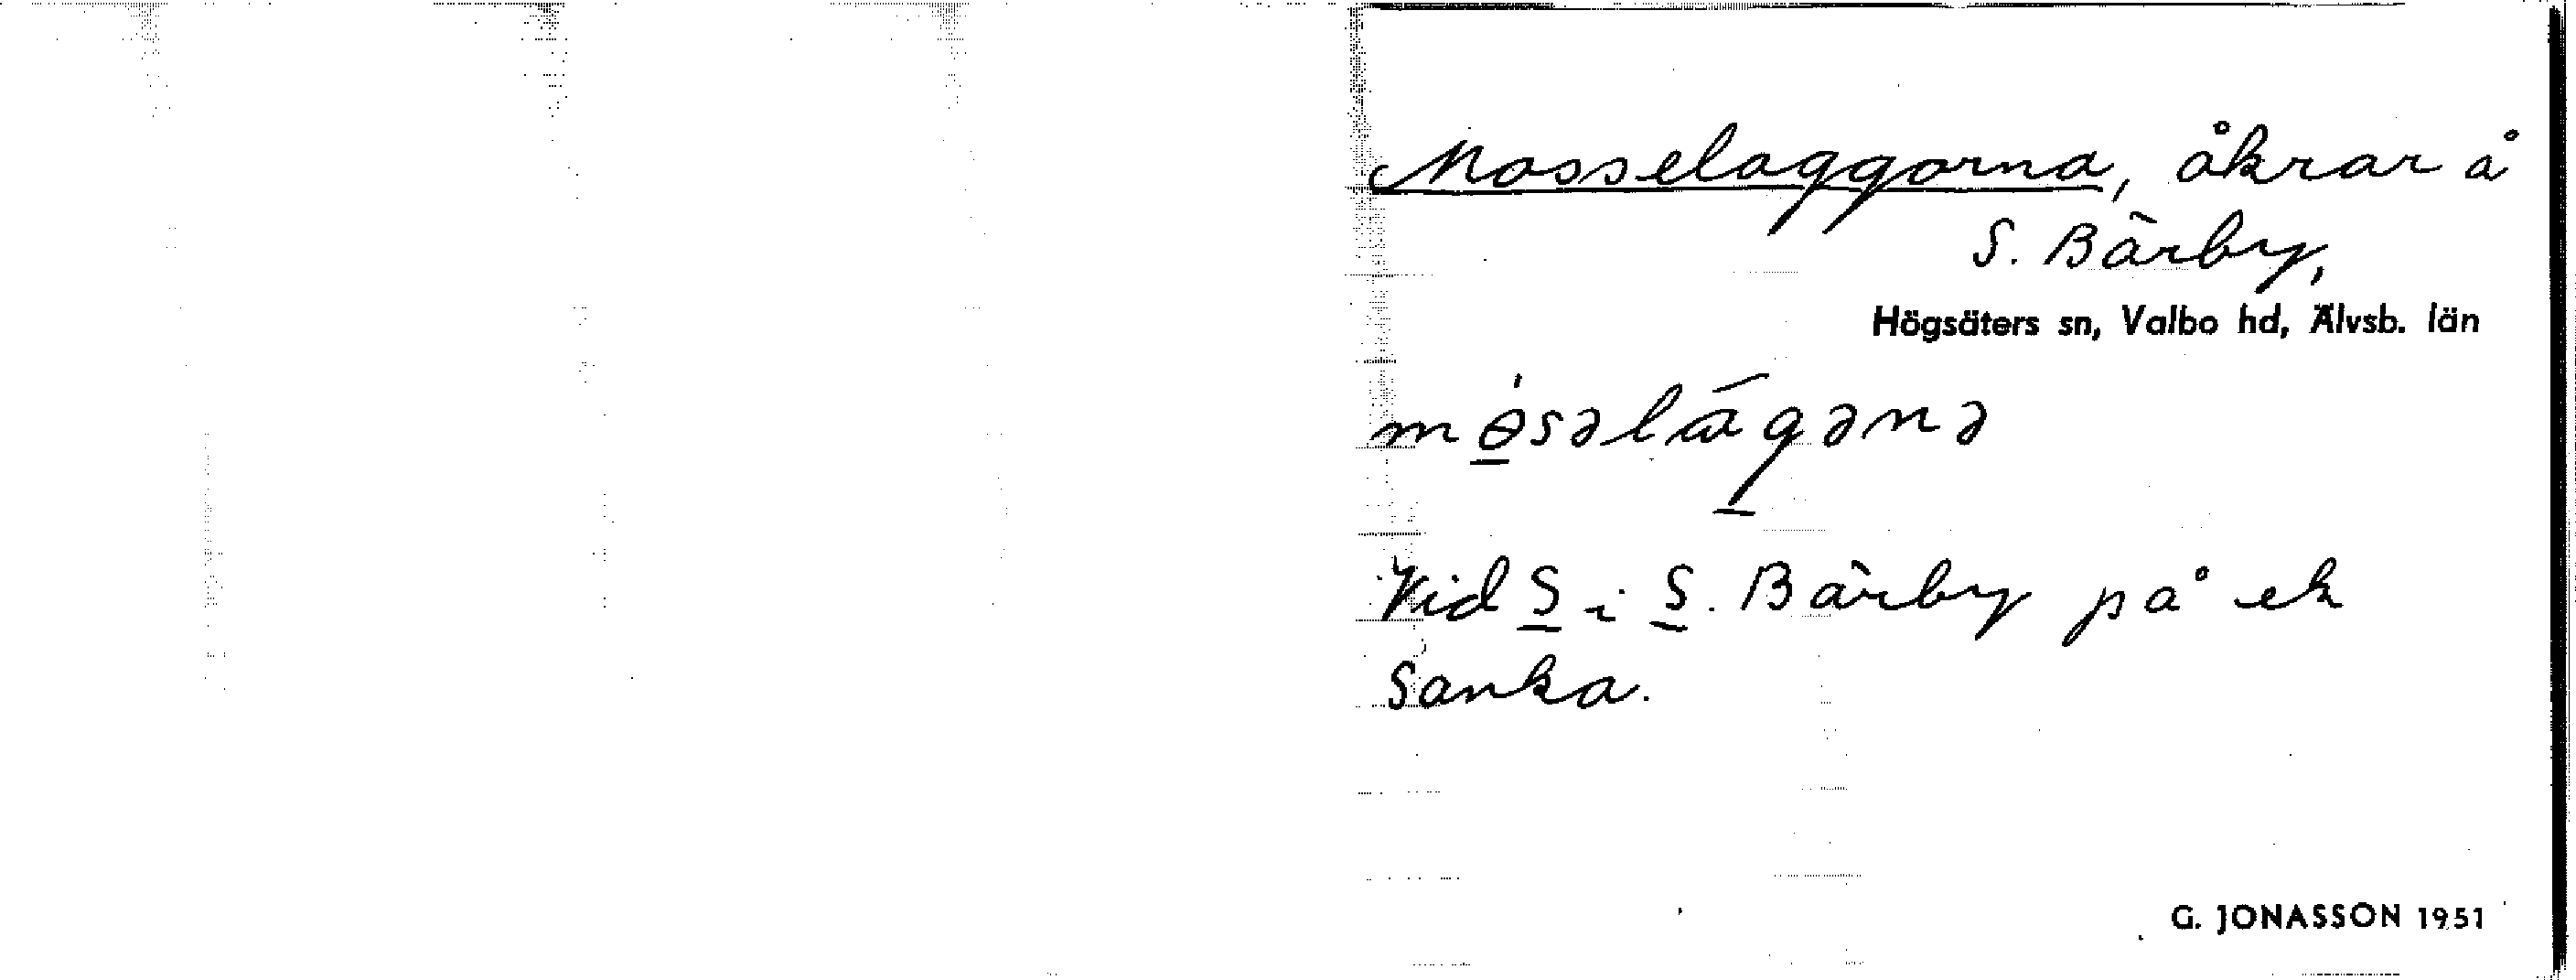 Mosselaggorna, åkrar å
S. Bärby,
Högsäters sn, Valbo hd, Älvsb. län
mɵ̲́səlág̲ənə
Vid S̲ i S̲. Bärby på ek
Sanka.
G. JONASSON 1951